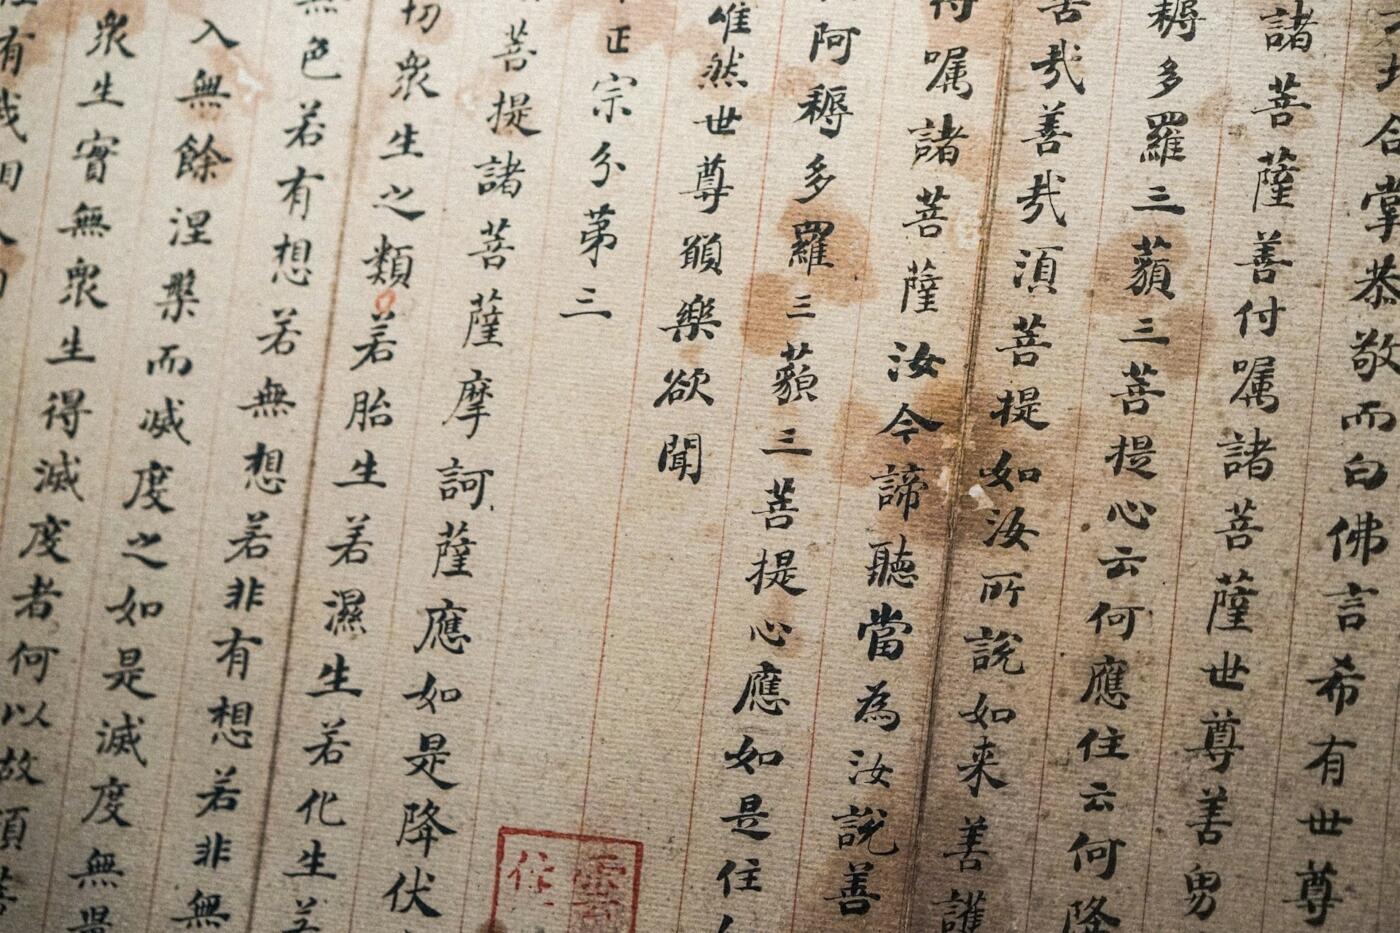 合掌恭敬而白佛言希有世尊
諸菩薩善付嘱諸菩薩世尊善男
耨多羅三藐三菩提心云何應住云何降
㢤善㢤湏菩提如汝所說如来善護
嘱諸菩薩汝今諦聽當為汝說善
阿耨多羅三藐三菩提心應如是住
唯然世尊願樂欲聞
正宗分第三
菩提諸菩薩摩訶薩應如是降伏
切衆生之類若胎生若濕生若化生
色若有想若無想若非有想若非無
入無餘涅槃而滅度之如是滅度無
衆生實無衆生得滅度者何以故須菩
有我相人
住